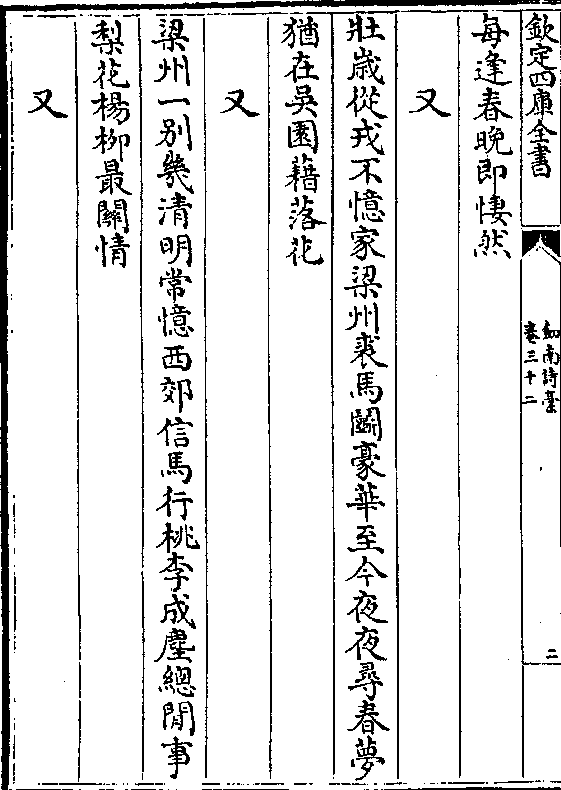 欽定四庫全書
劍南詩藁
卷三十二
二
每逢春晚即悽然
又
壯歳從戎不憶家梁州裘馬鬭豪華至今夜夜尋春夢
猶在吳園藉落花
又
梁州一别幾清明常憶西郊信馬行桃李成塵總閒事
梨花楊柳最關情
又